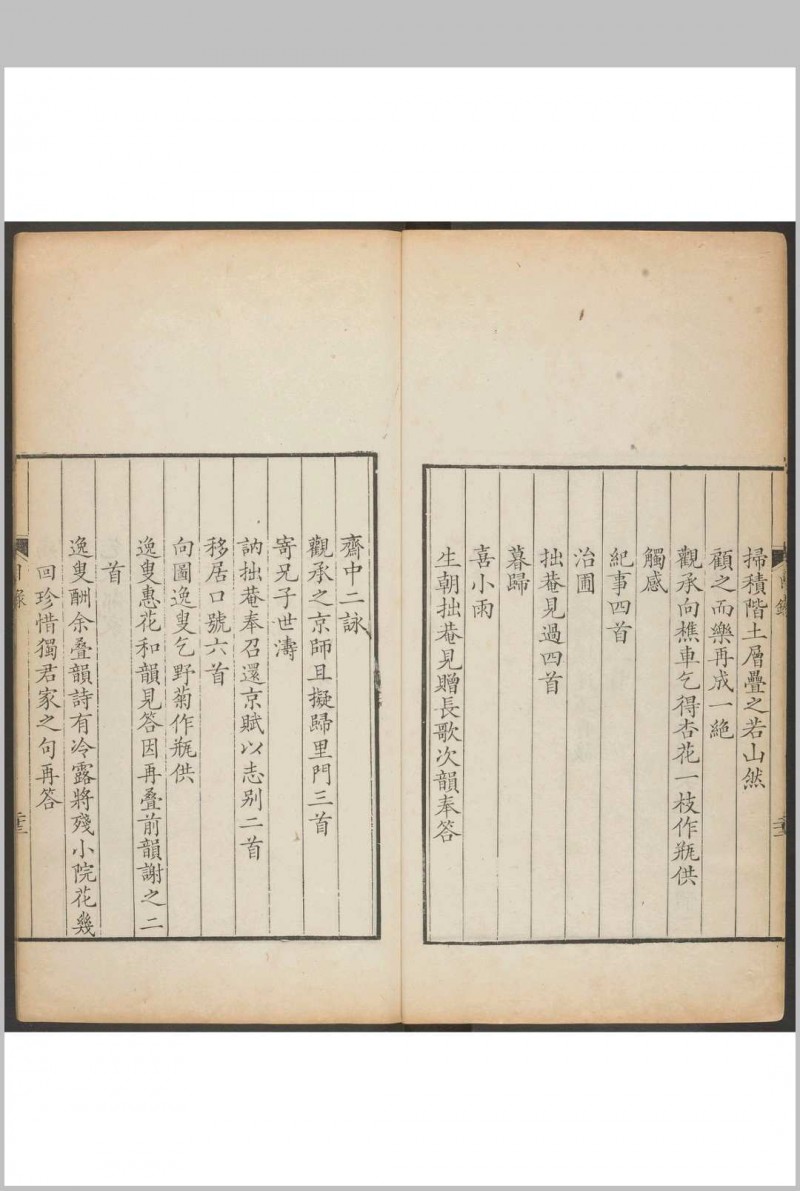 掃積階土層疊之若山然
顧之而樂再成一絶
觀承向樵車乞得杏花一枝作瓶供
觸感
紀事四首
治圃
拙菴見過四首
暮歸
喜小雨
生朝拙菴見贈長歌次韻奉答
齋中二詠
觀承之京師且擬歸里門三首
寄兄子世濤
訥拙菴奉召還京賦以志別二首
移居口號六首
向圖逸叟乞野菊作瓶供
逸叟惠花和韻見答因再叠前韻謝之二
首
逸叟酬余叠韻詩有冷露將殘小院花幾
回珍惜獨君家之句再答
目錄